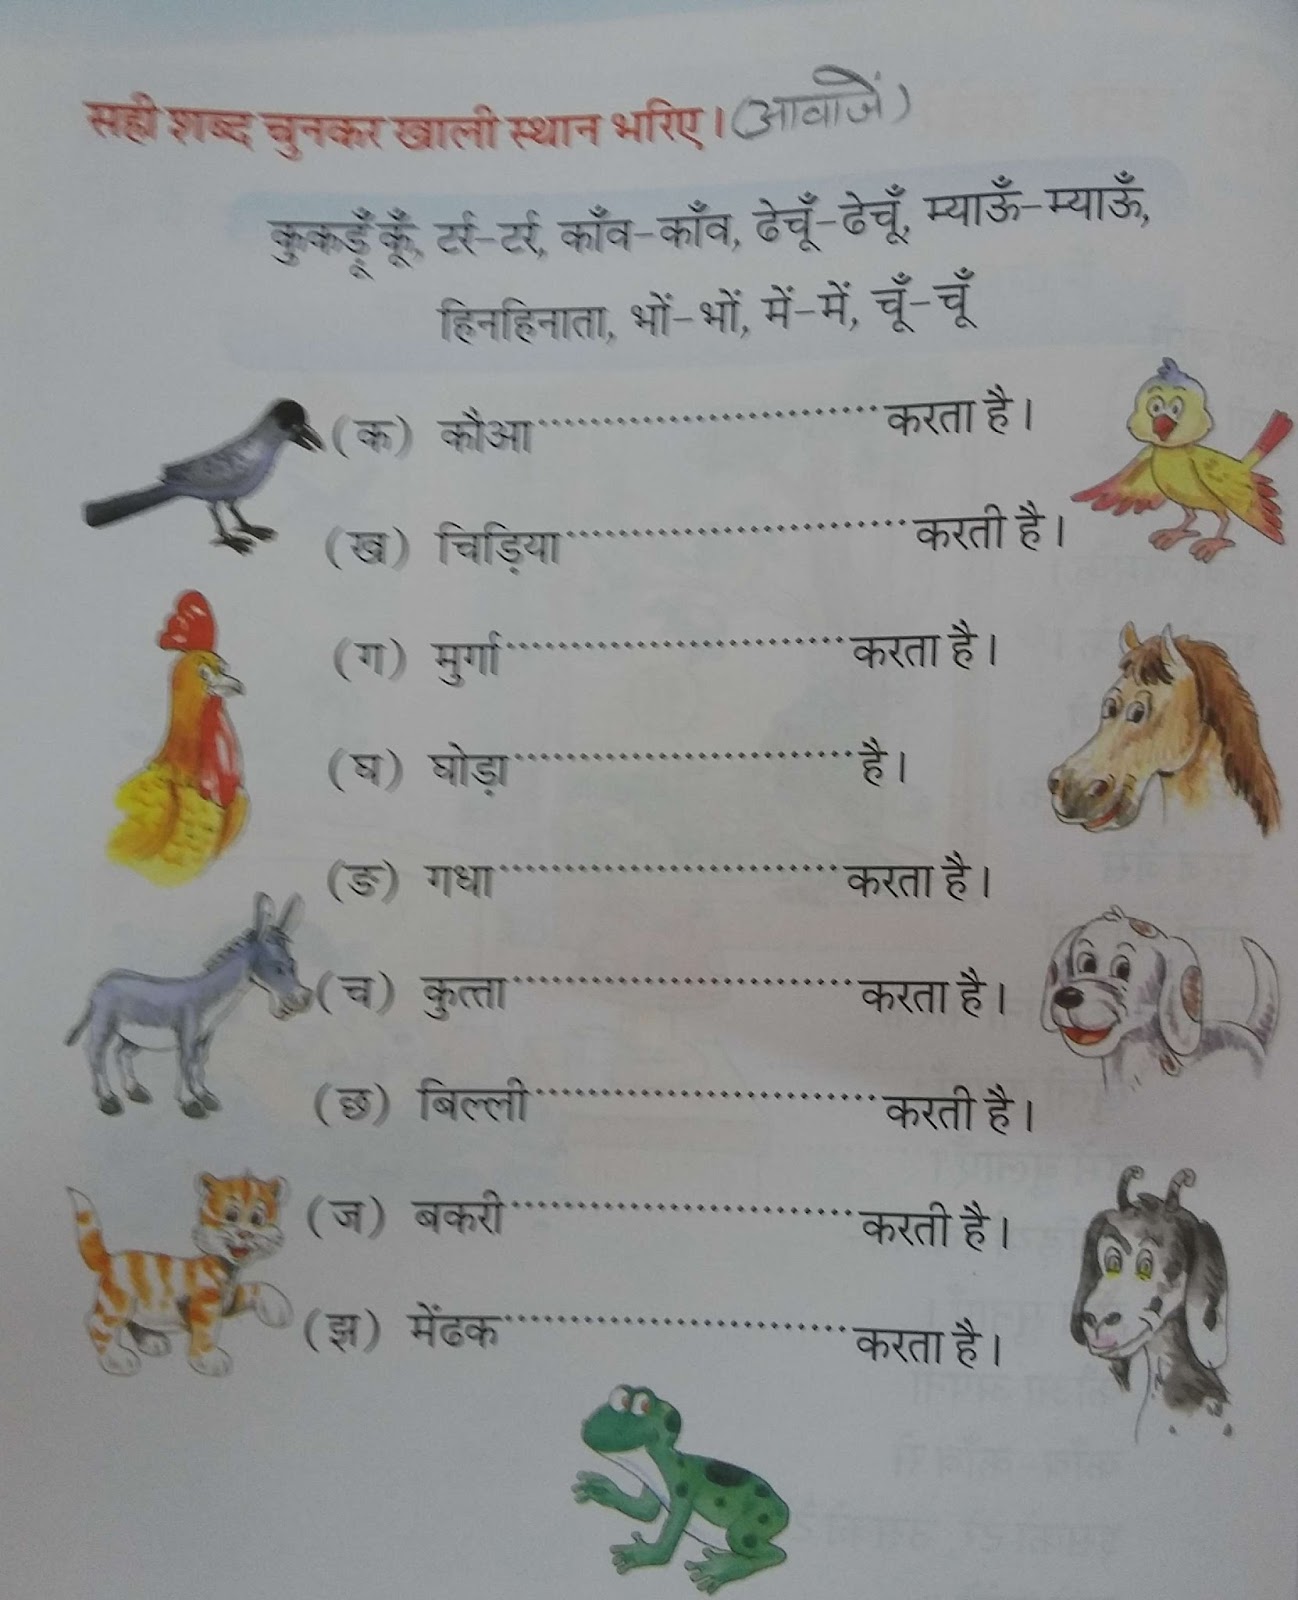 सही शब्द चुनकर खाली स्थान भरिए। (आवाजें)
कुकड़ूँ कूँ, टर्र-टर्र, काँव-काँव, ढेचूँ-ढेचूँ, म्याऊँ-म्याऊँ,
हिनहिनाता, भों-भों, में-में, चूँ-चूँ
(क) कौआ.............................करता है।
(ख) चिड़िया.............................करती है।
(ग) मुर्गा.............................करता है।
(घ) घोड़ा.............................है।
(ङ) गधा.............................करता है।
(च) कुत्ता.............................करता है।
(छ) बिल्ली.............................करती है।
(ज) बकरी.............................करती है।
(झ) मेंढक.............................करता है।